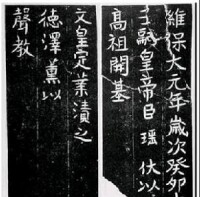 維保大元年歲次癸卯
嗣皇帝臣瑶 伏以
高祖開基
文皇定業漬之
德澤薰以
聲教